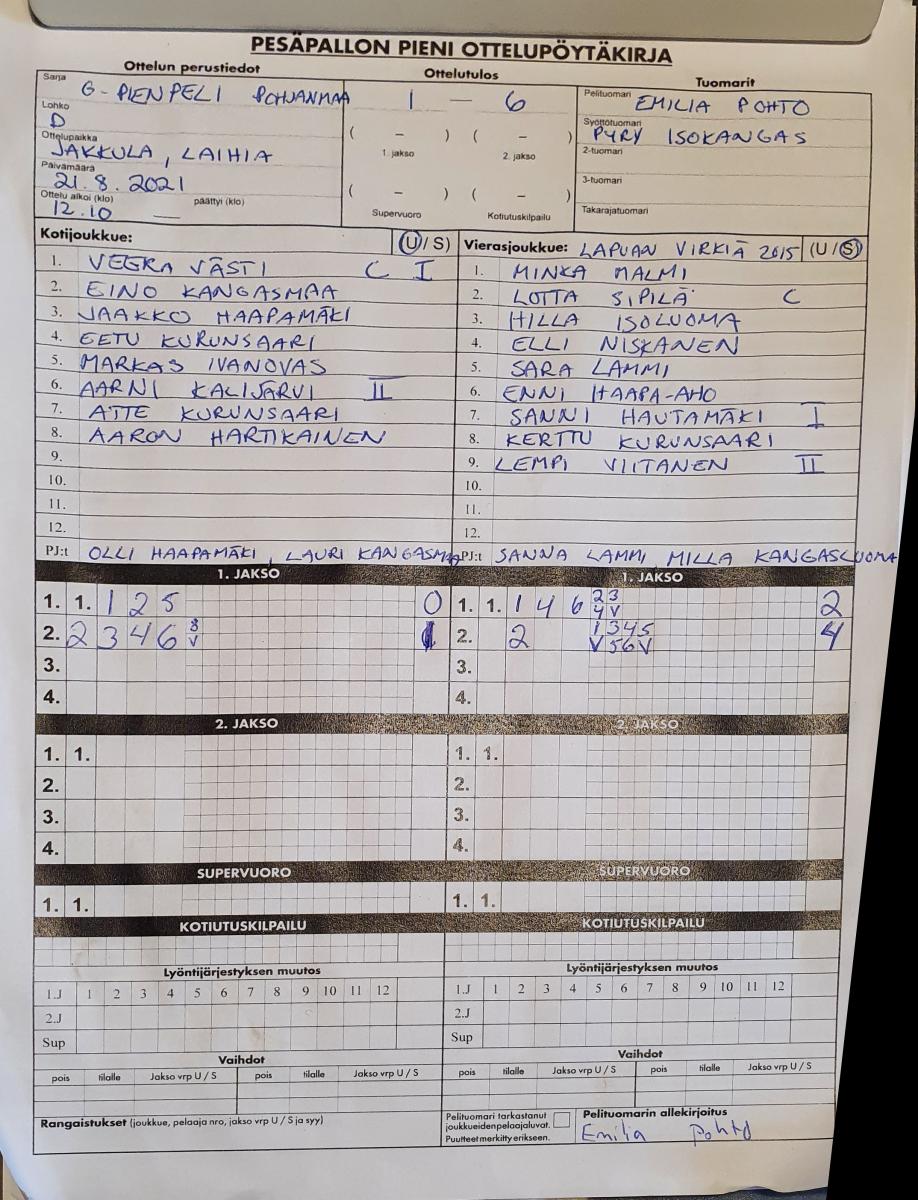 PESÄPALLON PIENI OTTELUPÖYTÄKIRJA
Ottelun perustiedot Ottelutulos Tuomarit
Sarja
G-PIENPELI POHJANMAA 1 — 6
Pelituomari
EMILIA POHTO
Lohko
D
Syöttötuomari
PYRY ISOKANGAS
( – ) ( – )
Ottelupaikka
JAKKULA, LAIHIA
1. jakso 2. jakso
2-tuomari
Päivämäärä
21.8.2021
3-tuomari
Ottelu alkoi (klo) päättyi (klo)
12.10 —
( – ) ( – )
Supervuoro Kotiutuskilpailu
Takarajatuomari
Kotijoukkue: (U/S) Vierasjoukkue: LAPUAN VIRKIÄ 2015 (U/S)
1. VEERA VÄSTI C I 1. MINKA MALMI
2. EINO KANGASMAA 2. LOTTA SIPILÄ C
3. JAAKKO HAAPAMÄKI 3. HILLA ISOLUOMA
4. EETU KURUNSAARI 4. ELLI NISKANEN
5. MARKAS IVANOVAS 5. SARA LAMMI
6. AARNI KALIJÄRVI II 6. ENNI HAAPA-AHO
7. ATTE KURUNSAARI 7. SANNI HAUTAMÄKI I
8. AARON HARTIKAINEN 8. KERTTU KURUNSAARI
9. 9. LEMPI VIITANEN II
10. 10.
11. 11.
12. 12.
PJ:t OLLI HAAPAMÄKI, LAURI KANGASMAA PJ:t SANNA LAMMI, MILLA KANGASLUOMA
1. JAKSO 1. JAKSO
1. 1. 1 2 5 0 1. 1. 1 4 6 2 3 4 V 2
2. 2 3 4 6 8 V 1 2. 2 1 3 4 5 V 5 6 V 4
3. 3.
4. 4.
2. JAKSO 2. JAKSO
1. 1. 1. 1.
2. 2.
3. 3.
4. 4.
SUPERVUORO SUPERVUORO
1. 1. 1. 1.
KOTIUTUSKILPAILU KOTIUTUSKILPAILU
Lyöntijärjestyksen muutos Lyöntijärjestyksen muutos
1.J 1 2 3 4 5 6 7 8 9 10 11 12 1.J 1 2 3 4 5 6 7 8 9 10 11 12
2.J 2.J
Sup Sup
Vaihdot Vaihdot
pois tilalle Jakso vrp U / S pois tilalle Jakso vrp U / S pois tilalle Jakso vrp U / S pois tilalle Jakso vrp U / S
Rangaistukset (joukkue, pelaaja nro, jakso vrp U / S ja syy)
Pelituomari tarkastanut
joukkueiden pelaajaluvat.
Puutteet merkitty erikseen.
Pelituomarin allekirjoitus
Emilia Pohto